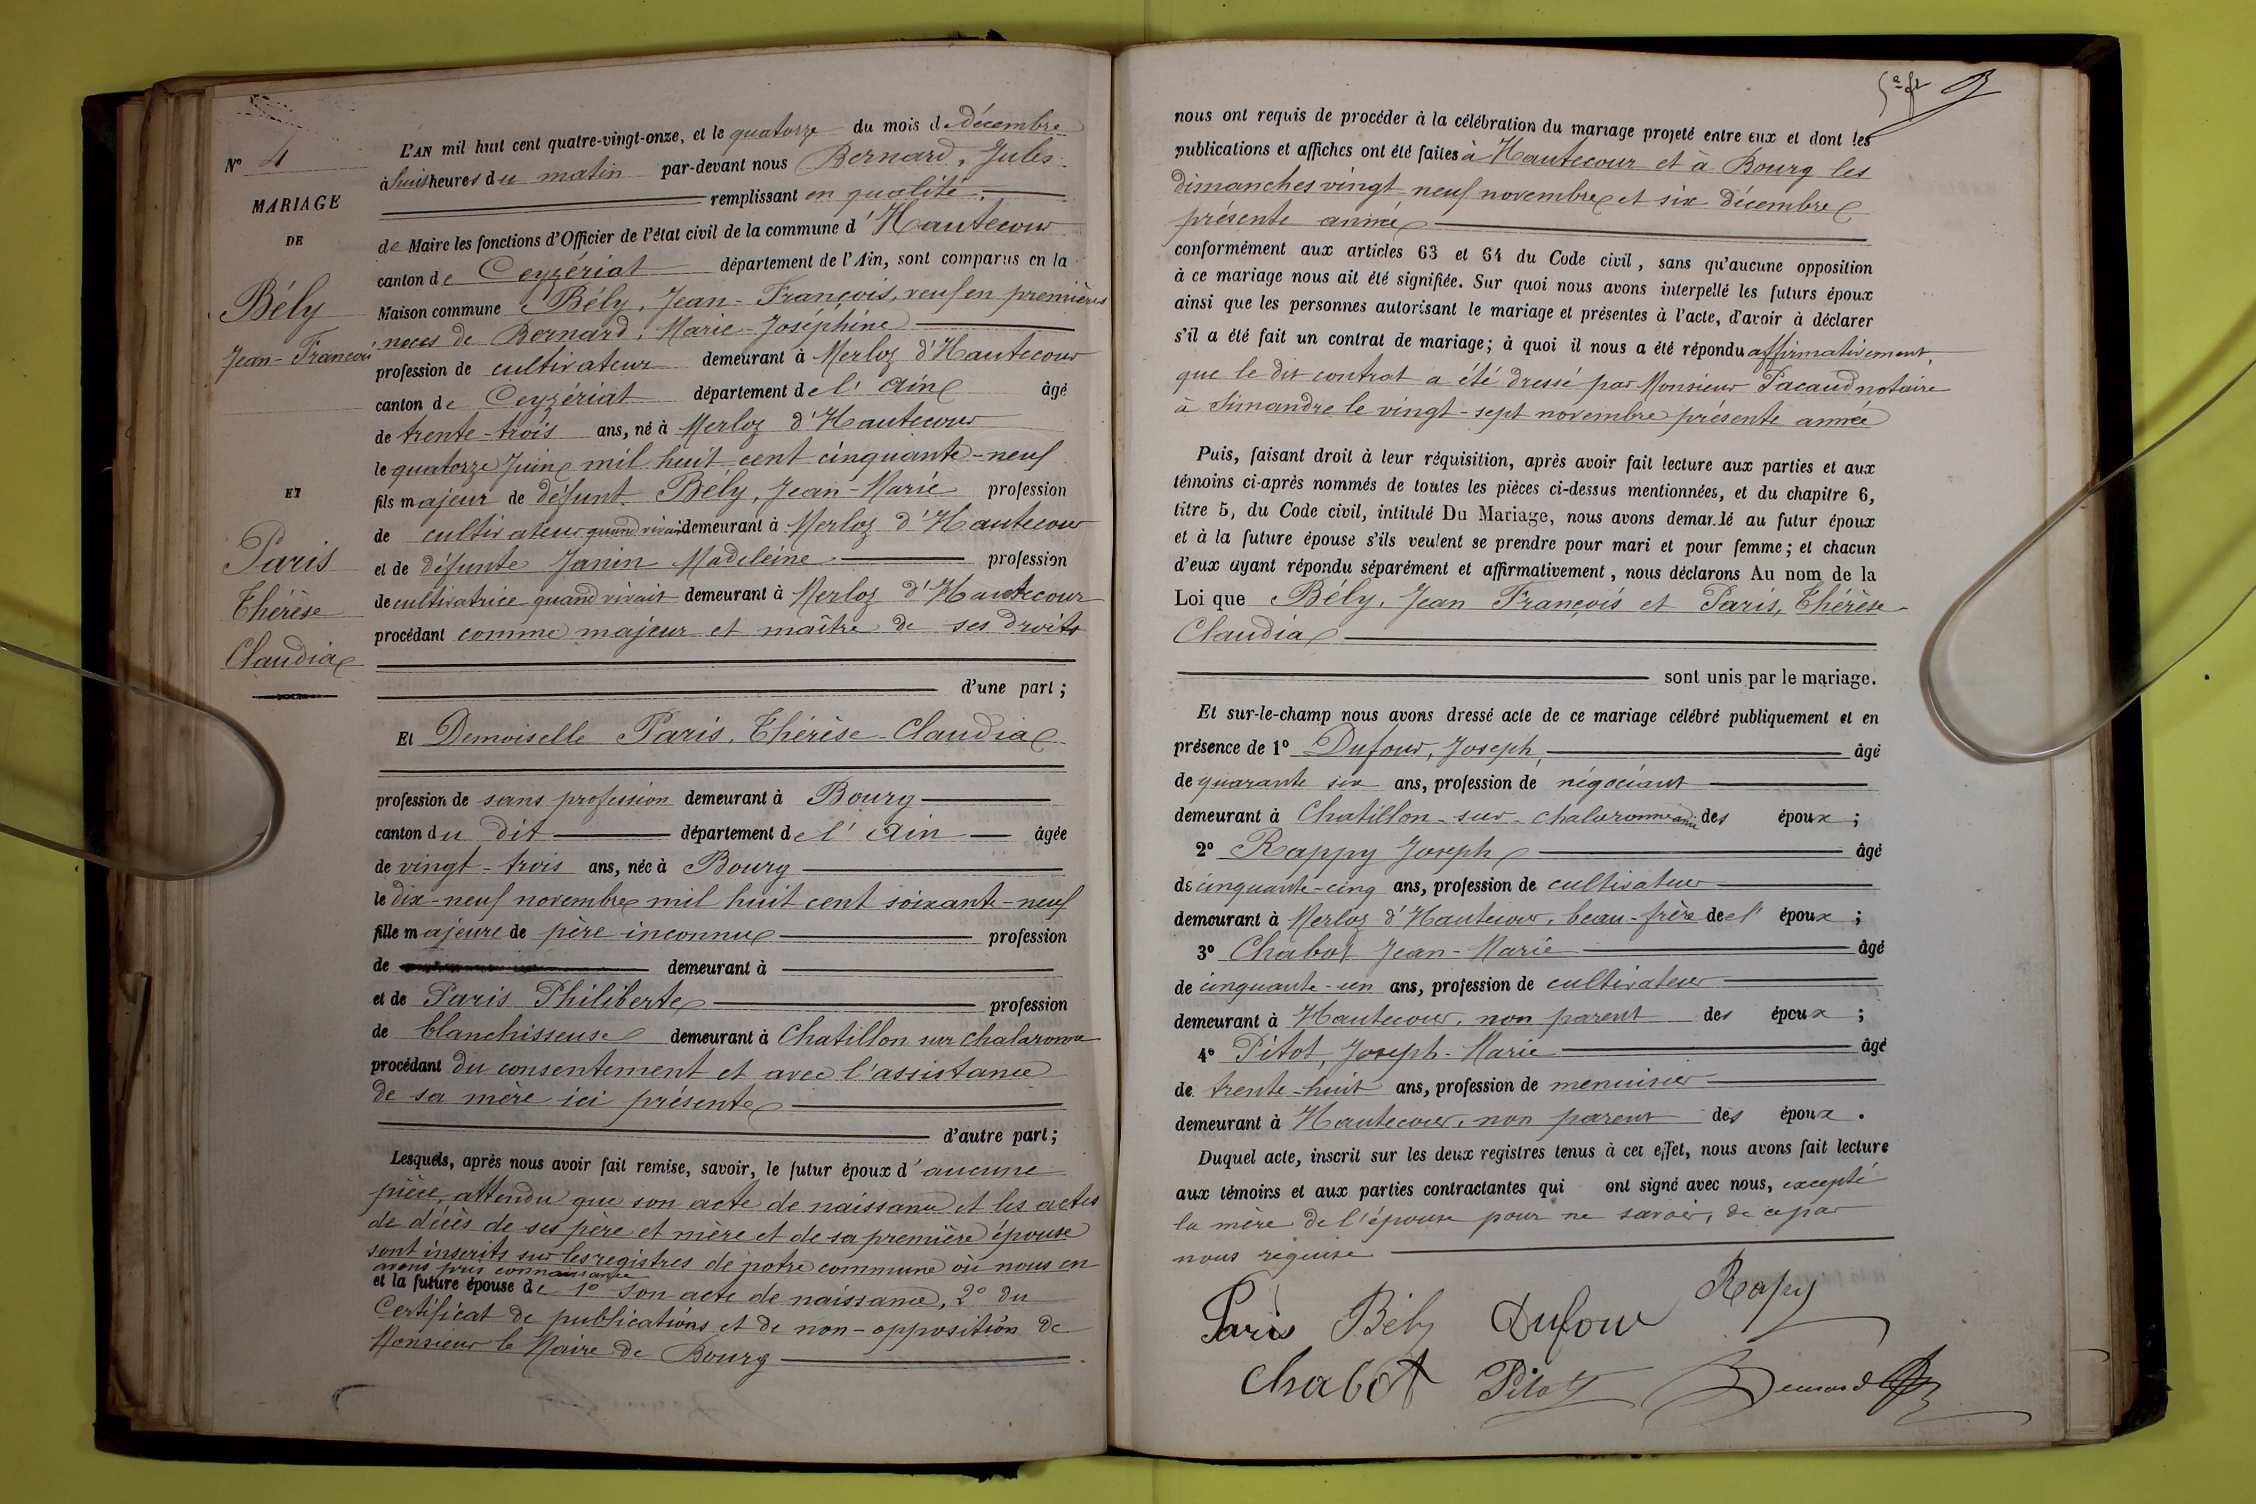 N° 4
MARIAGE
DE
Bély
Jean-François
ET
Paris
Thérèse
Claudia
L'AN mil huit cent quatre-vingt-onze, et le quatorze du mois de décembre
à huit heures du matin par-devant nous Bernard, Jules
remplissant en qualité
de Maire les fonctions d'Officier de l'état civil de la commune d'Hautecour
canton de Ceyzériat département de l'Ain, sont comparus en la
Maison commune Bély, Jean-François, veuf en premières
noces de Bernard, Marie-Joséphine
profession de cultivateur demeurant à Merloz d'Hautecour
canton de Ceyzériat département de l'Ain âgé
de trente-trois ans, né à Merloz d'Hautecour
le quatorze Juin mil huit cent cinquante-neuf
fils majeur de défunt Bély, Jean-Marie profession
de cultivateur quand vivait demeurant à Merloz d'Hautecour
et de défunte Janin Madeleine profession
de cultivatrice quand vivait demeurant à Merloz d'Hautecour
procédant comme majeur et maître de ses droits
d'une part ;
Et Demoiselle Paris, Thérèse-Claudia
profession de sans profession demeurant à Bourg
canton du dit département de l'Ain âgée
de vingt-trois ans, née à Bourg
le dix-neuf novembre mil huit cent soixante-neuf
fille majeure de père inconnu profession
de demeurant à
et de Paris Philiberte profession
de blanchisseuse demeurant à Chatillon sur Chalaronne
procédant du consentement et avec l'assistance
de sa mère ici présente
d'autre part ;
Lesquels, après nous avoir fait remise, savoir, le futur époux d'aucune
pièce, attendu que son acte de naissance et les actes
de décès de ses père et mère et de sa première épouse
sont inscrits sur les registres de notre commune où nous en
avons pris connaissance
et la future épouse de 1° son acte de naissance, 2° du
Certificat de publications et de non-opposition de
Monsieur le Maire de Bourg
nous ont requis de procéder à la célébration du mariage projeté entre eux et dont les
publications et affiches ont été faites à Hautecour et à Bourg les
dimanches vingt neuf novembre et six décembre
présente année
conformément aux articles 63 et 64 du Code civil, sans qu'aucune opposition
à ce mariage nous ait été signifiée. Sur quoi nous avons interpellé les futurs époux
ainsi que les personnes autorisant le mariage et présentes à l'acte, d'avoir à déclarer
s'il a été fait un contrat de mariage ; à quoi il nous a été répondu affirmativement,
que le dit contrat a été dressé par Monsieur Pacaud notaire
à Simandre le vingt-sept novembre présente année
Puis, faisant droit à leur réquisition, après avoir fait lecture aux parties et aux
témoins ci-après nommés de toutes les pièces ci-dessus mentionnées, et du chapitre 6,
titre 5, du Code civil, intitulé Du Mariage, nous avons demandé au futur époux
et à la future épouse s'ils veulent se prendre pour mari et pour femme ; et chacun
d'eux ayant répondu séparément et affirmativement, nous déclarons Au nom de la
Loi que Bély, Jean François et Paris, Thérèse
Claudia
sont unis par le mariage.
Et sur-le-champ nous avons dressé acte de ce mariage célébré publiquement et en
présence de 1° Dufour, Joseph, âgé
de quarante six ans, profession de négociant
demeurant à Chatillon-sur-chalaronne ami des époux ;
2° Rappy Joseph âgé
de cinquante-cinq ans, profession de cultivateur
demeurant à Merloz d'Hautecour, beau-frère de l'époux ;
3° Chabot Jean-Marie âgé
de cinquante-un ans, profession de cultivateur
demeurant à Hautecour, non parent des époux ;
4° Pitot, Joseph-Marie âgé
de trente-huit ans, profession de menuisier
demeurant à Hautecour, non parent des époux.
Duquel acte, inscrit sur les deux registres tenus à cet effet, nous avons fait lecture
aux témoins et aux parties contractantes qui ont signé avec nous, excepté
la mère de l'épouse pour ne savoir, de ce par
nous requise
Paris Bély Dufour Rapy
Chabot Pitot Bernard